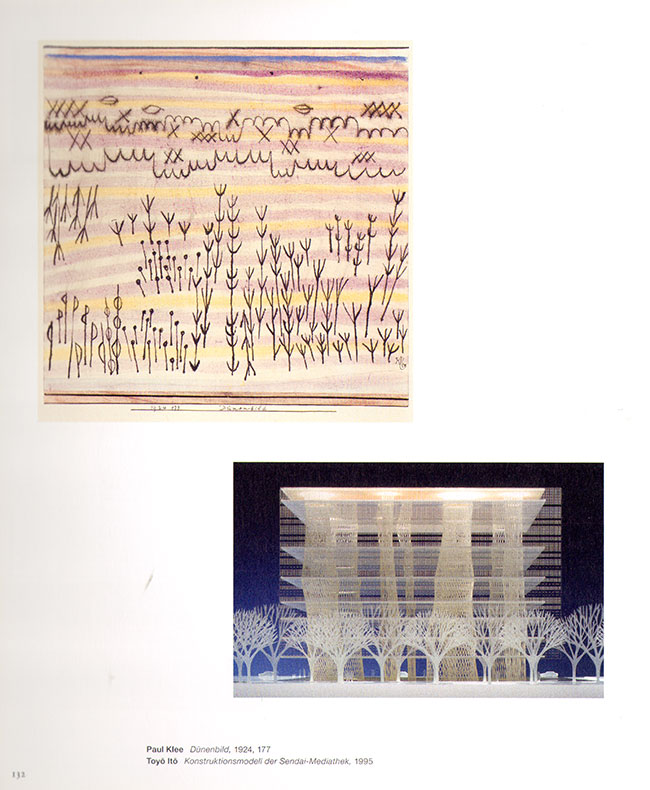 1924 177 Dünenbild
Paul Klee Dünenbild, 1924, 177
Toyō Itō Konstruktionsmodell der Sendai-Mediathek, 1995
132